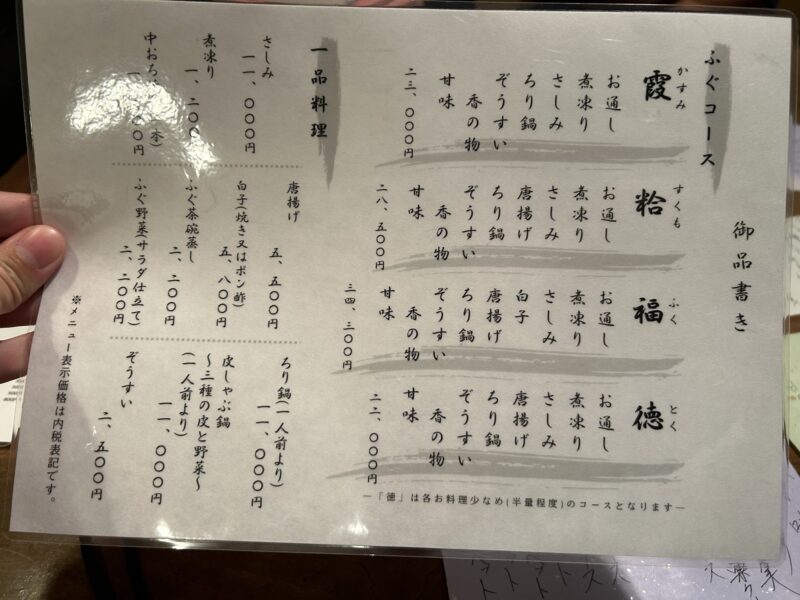 御品書き
ふぐコース
かすみ
霞
お通し
煮凍り
さしみ
ろり鍋
ぞうすい
香の物
甘味
二三、〇〇〇円
すくも
粭
お通し
煮凍り
さしみ
唐揚げ
ろり鍋
ぞうすい
香の物
甘味
二八、五〇〇円
ふく
福
お通し
煮凍り
さしみ
白子
唐揚げ
ろり鍋
ぞうすい
香の物
甘味
三四、三〇〇円
とく
徳
お通し
煮凍り
さしみ
唐揚げ
ろり鍋
ぞうすい
香の物
甘味
二二、〇〇〇円
―「徳」は各お料理少なめ(半量程度)のコースとなります―
一品料理
さしみ
一一、〇〇〇円
煮凍り
一、二〇〇円
中おろ
唐揚げ
五、五〇〇円
白子(焼き又はポン酢)
五、八〇〇円
ふぐ茶碗蒸し
二、二〇〇円
ふぐ野菜(サラダ仕立て)
二、二〇〇円
ろり鍋(一人前より)
一一、〇〇〇円
皮しゃぶ鍋
～三種の皮と野菜～
(一人前より)
一一、〇〇〇円
ぞうすい
二、五〇〇円
※メニュー表示価格は内税表記です。